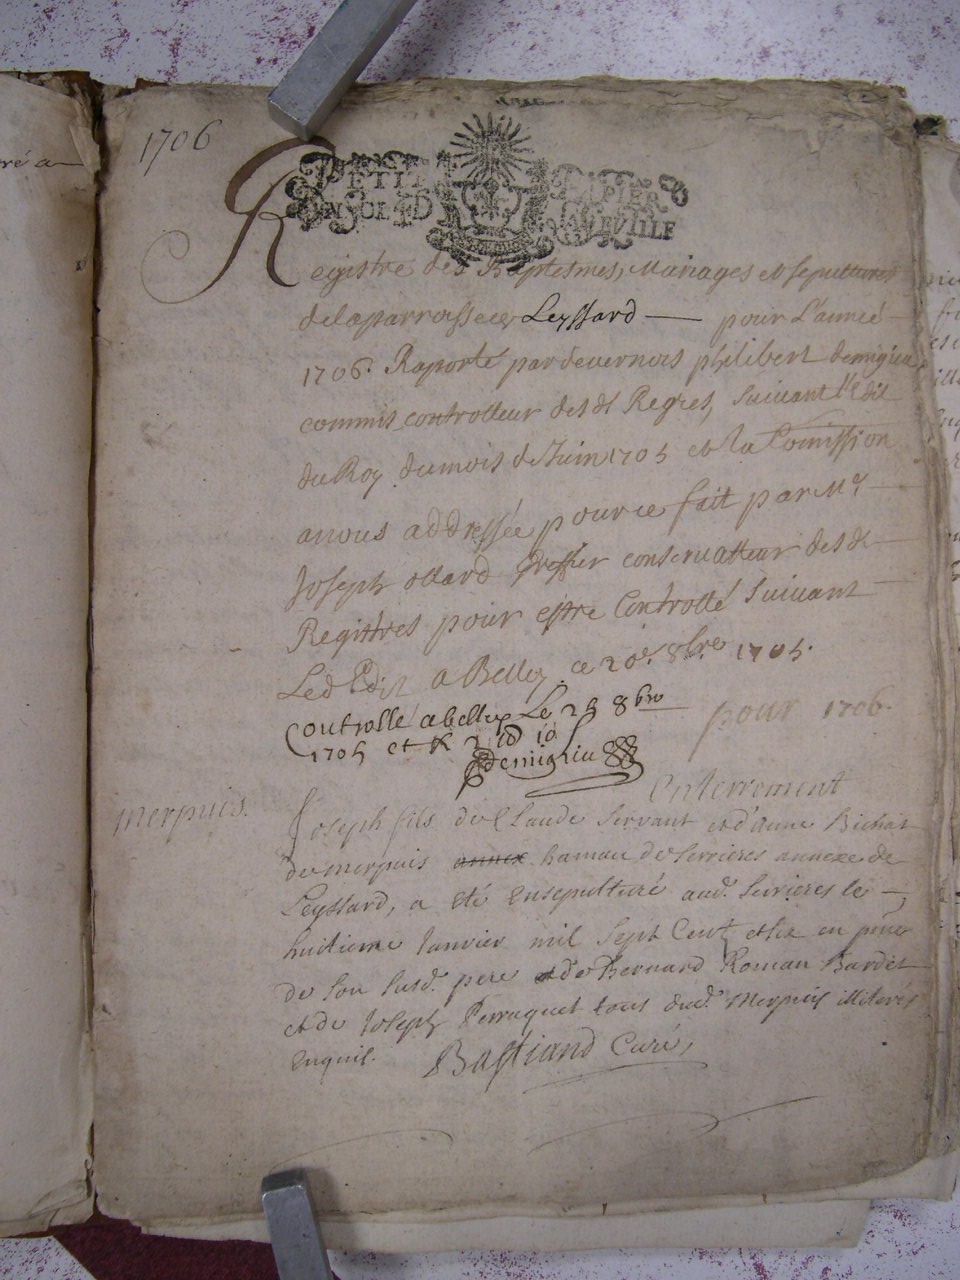 1706
PETIT PAPIER
UN SOL 4 D LA FEUILLE
Registre des Baptesmes, Mariages et sepultures
de la parroisse de Leyssard pour L'année
1706. Raporté pardevernous philibert demigieu
commis controlleur desdt Regres, suivant l'Edit
du Roy du mois de Juin 1705 et la Comission
a nous addressée pour ce fait par Mr
Joseph ollard Greffier conservatteur desdt
Registres pour estre Controllé suivant
Led Edit a Belley ce 20e 8bre 1705.
Controllé a belley Le 28 8bre pour 1706.
1705 et R
Demigieu
Enterrement
merpuis. Joseph fils de Claude Servant et d'anne Bichat
de merpuis annex hamau de serrieres annexe de
Leyssard, a eté Ensepulturé aud. serrieres le
huitieme Janvier mil sept Cent et six en pnce
de son susd. pere et de Bernard Roman Bardet
et de Joseph Perruquet tous dud. Merpuis illiterés
Enquis. Bastiand Curé,
ré a